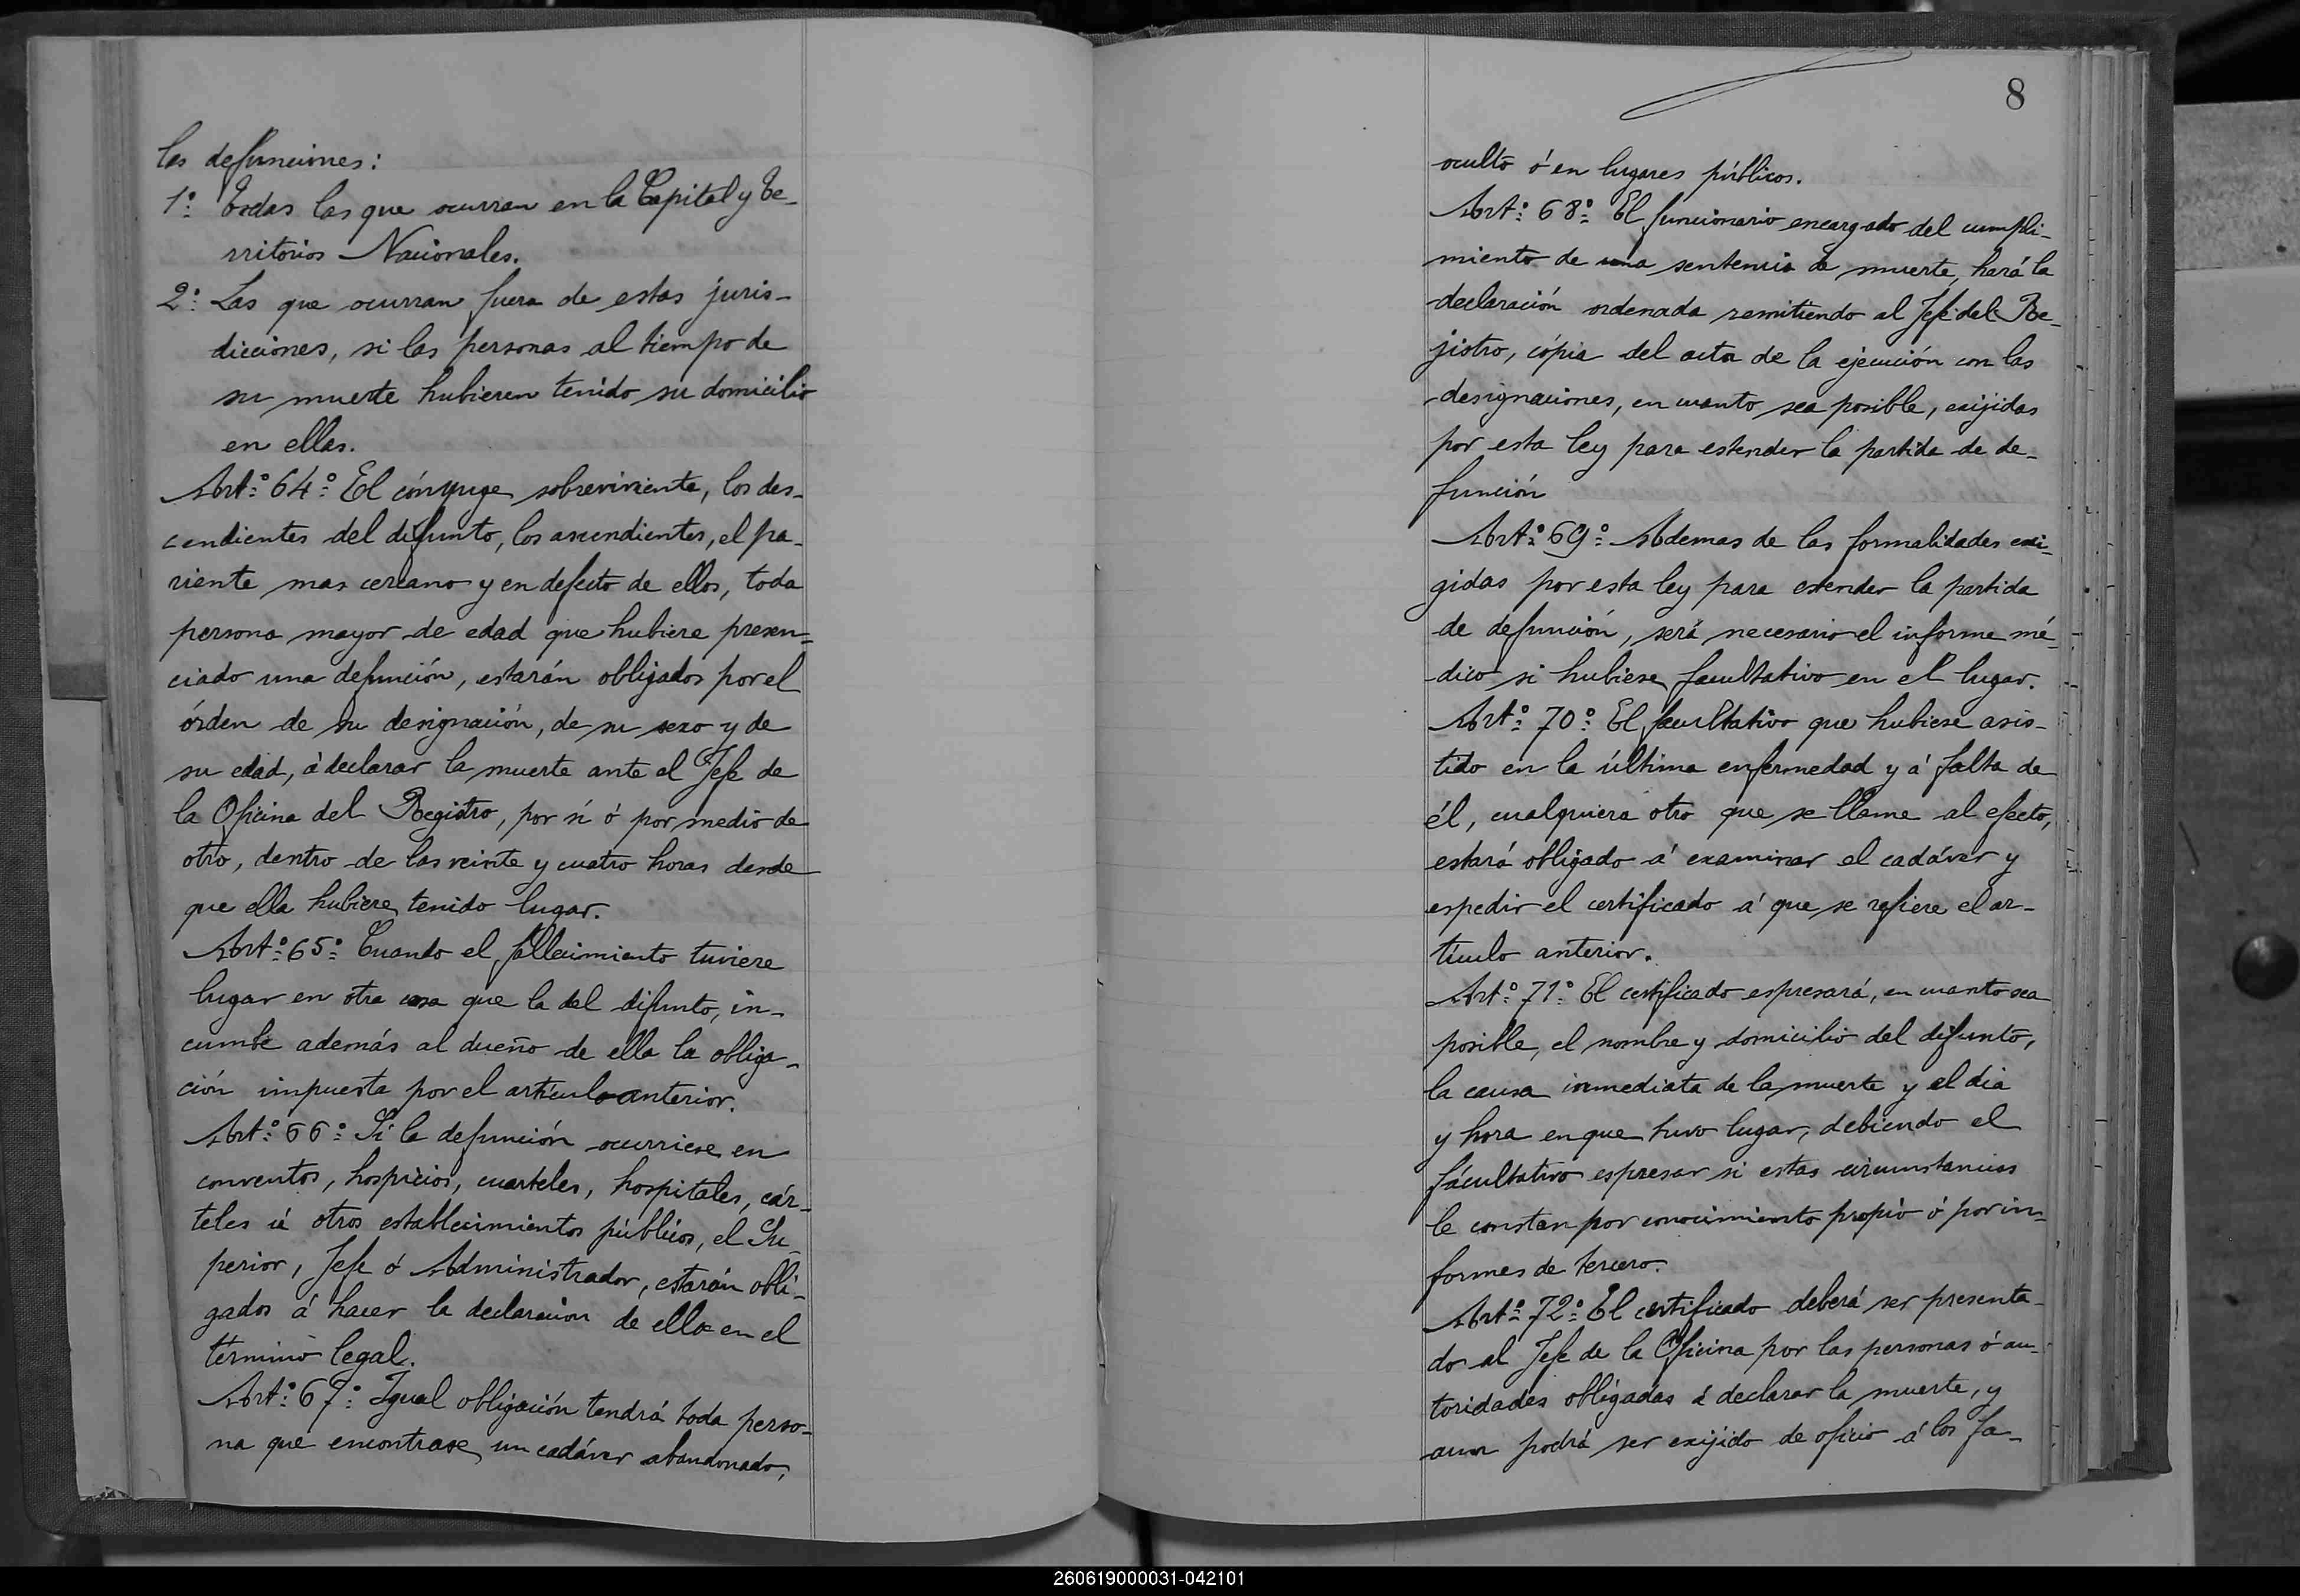 las defunciones:
1º Todas las que ocurran en la Capital y Te-
rritorios Nacionales.
2º Las que ocurran fuera de estas juris-
dicciones, si las personas al tiempo de
su muerte hubieren tenido su domicilio
en ellas.
Artº 64º El cónyuge sobreviviente, los des-
cendientes del difunto, los ascendientes, el pa-
riente mas cercano y en defecto de ellos, toda
persona mayor de edad que hubiere presen-
ciado una defunción, estarán obligados por el
órden de su designación, de su sexo y de
su edad, á declarar la muerte ante el Jefe de
la Oficina del Registro, por sí ó por medio de
otro, dentro de las veinte y cuatro horas desde
que ella hubiere tenido lugar.
Artº 65º Cuando el fallecimiento tuviere
lugar en otra casa que la del difunto, in-
cumbe además al dueño de ella la obliga-
ción impuesta por el artículo anterior.
Artº 66º Si la defunción ocurriese en
conventos, hospicios, cuarteles, hospitales, cár-
teles ú otros establecimientos públicos, el Su-
perior, Jefe ó Administrador, estarán obli-
gados á hacer la declaracion de ella en el
término legal.
Artº 67º Igual obligación tendrá toda perso-
na que encontrase un cadáver abandonado,
8
oculto ó en lugares públicos.
Artº 68º El funcionario encargado del cumpli-
miento de una sentencia de muerte, hará la
declaración ordenada remitiendo al Jefe del Re-
jistro, cópia del acta de la ejecución con las
designaciones, en cuanto sea posible, exijidas
por esta ley para estender la partida de de-
función
Artº 69º Ademas de las formalidades exi-
gidas por esta ley para estender la partida
de defunción, será necesario el informe mé-
dico si hubiese facultativo en el lugar.
Artº 70º El facultativo que hubiese asis-
tido en la última enfermedad y á falta de
él, cualquiera otro que se llame al efecto,
estará obligado á examinar el cadáver y
espedir el certificado á que se refiere el ar-
tículo anterior.
Artº 71º El certificado espresará, en cuanto sea
posible, el nombre y domicilio del difunto,
la causa inmediata de la muerte y el dia
y hora en que tuvo lugar, debiendo el
facultativo espresar si estas circunstancias
le constan por conocimiento propio ó por in-
formes de tercero.
Artº 72º El certificado deberá ser presenta-
do al Jefe de la Oficina por las personas ó au-
toridades obligadas á declarar la muerte, y
aun podrá ser exijido de oficio á los fa-
260619000031-042101